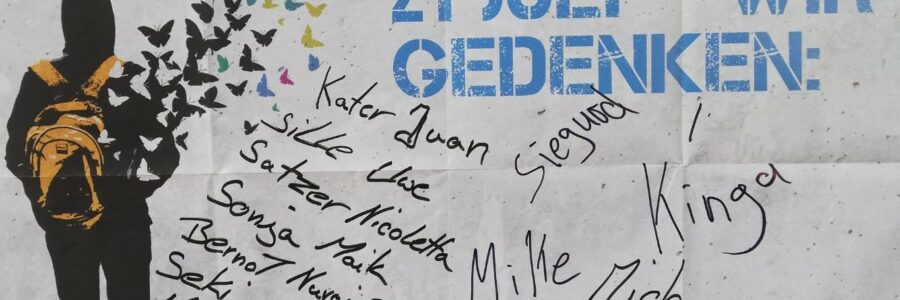 21 JULI WIR
GEDENKEN:
Kater Juan
Silke Uwe
Satzer Nicoletta
Sonja Maik
Bernot
Seki
Siegurd
Kinga
Mike